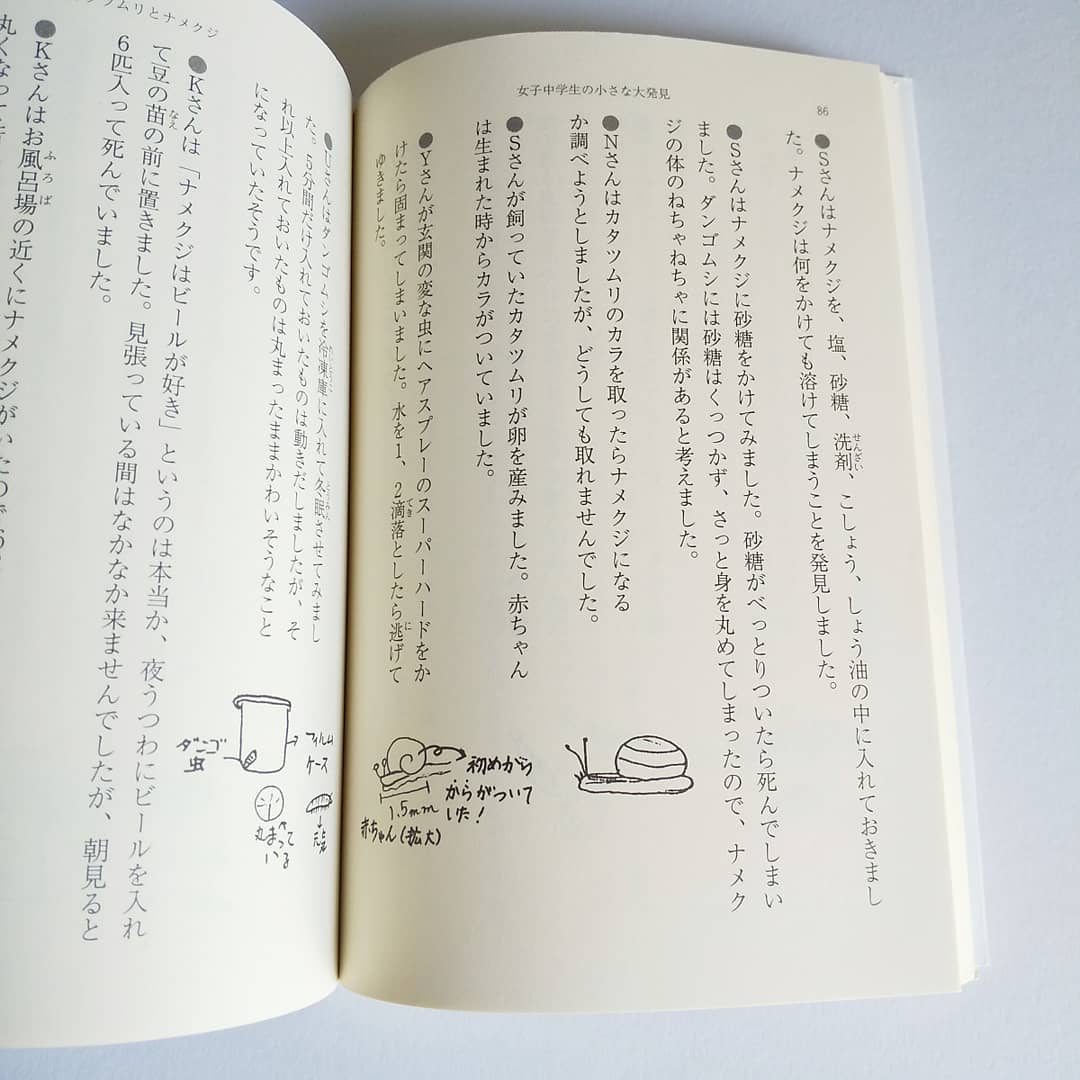 女子中学生の小さな大発見
86
●Sさんはナメクジを、塩、砂糖、洗剤、こしょう、しょう油の中に入れておきまし
た。ナメクジは何をかけても溶けてしまうことを発見しました。
●Sさんはナメクジに砂糖をかけてみました。砂糖がべっとりついたら死んでしまい
ました。ダンゴムシには砂糖はくっつかず、さっと身を丸めてしまったので、ナメク
ジの体のねちゃねちゃに関係があると考えました。
●Nさんはカタツムリのカラを取ったらナメクジになる
か調べようとしましたが、どうしても取れませんでした。
●Sさんが飼っていたカタツムリが卵を産みました。赤ちゃん
は生まれた時からカラがついていました。
●Yさんが玄関の変な虫にヘアスプレーのスーパーハードをか
けたら固まってしまいました。水を1、2滴落としたら逃げて
ゆきました。
初めから
からがついて
いした!
1.5mm
赤ちゃん(拡大)
ツムリとナメクジ
●Uさんはダンゴムシを冷凍庫に入れて冬眠させてみまし
た。5分間だけ入れておいたものは動きだしましたが、そ
れ以上入れておいたものは丸まったままかわいそうなこと
になっていたそうです。
●Kさんは「ナメクジはビールが好き」というのは本当か、夜うつわにビールを入れ
て豆の苗の前に置きました。見張っている間はなかなか来ませんでしたが、朝見ると
6匹入って死んでいました。
●Kさんはお風呂場の近くにナメクジがいたので
丸くなって
フィルム
ケース
ダンゴ
虫
丸まって
いる